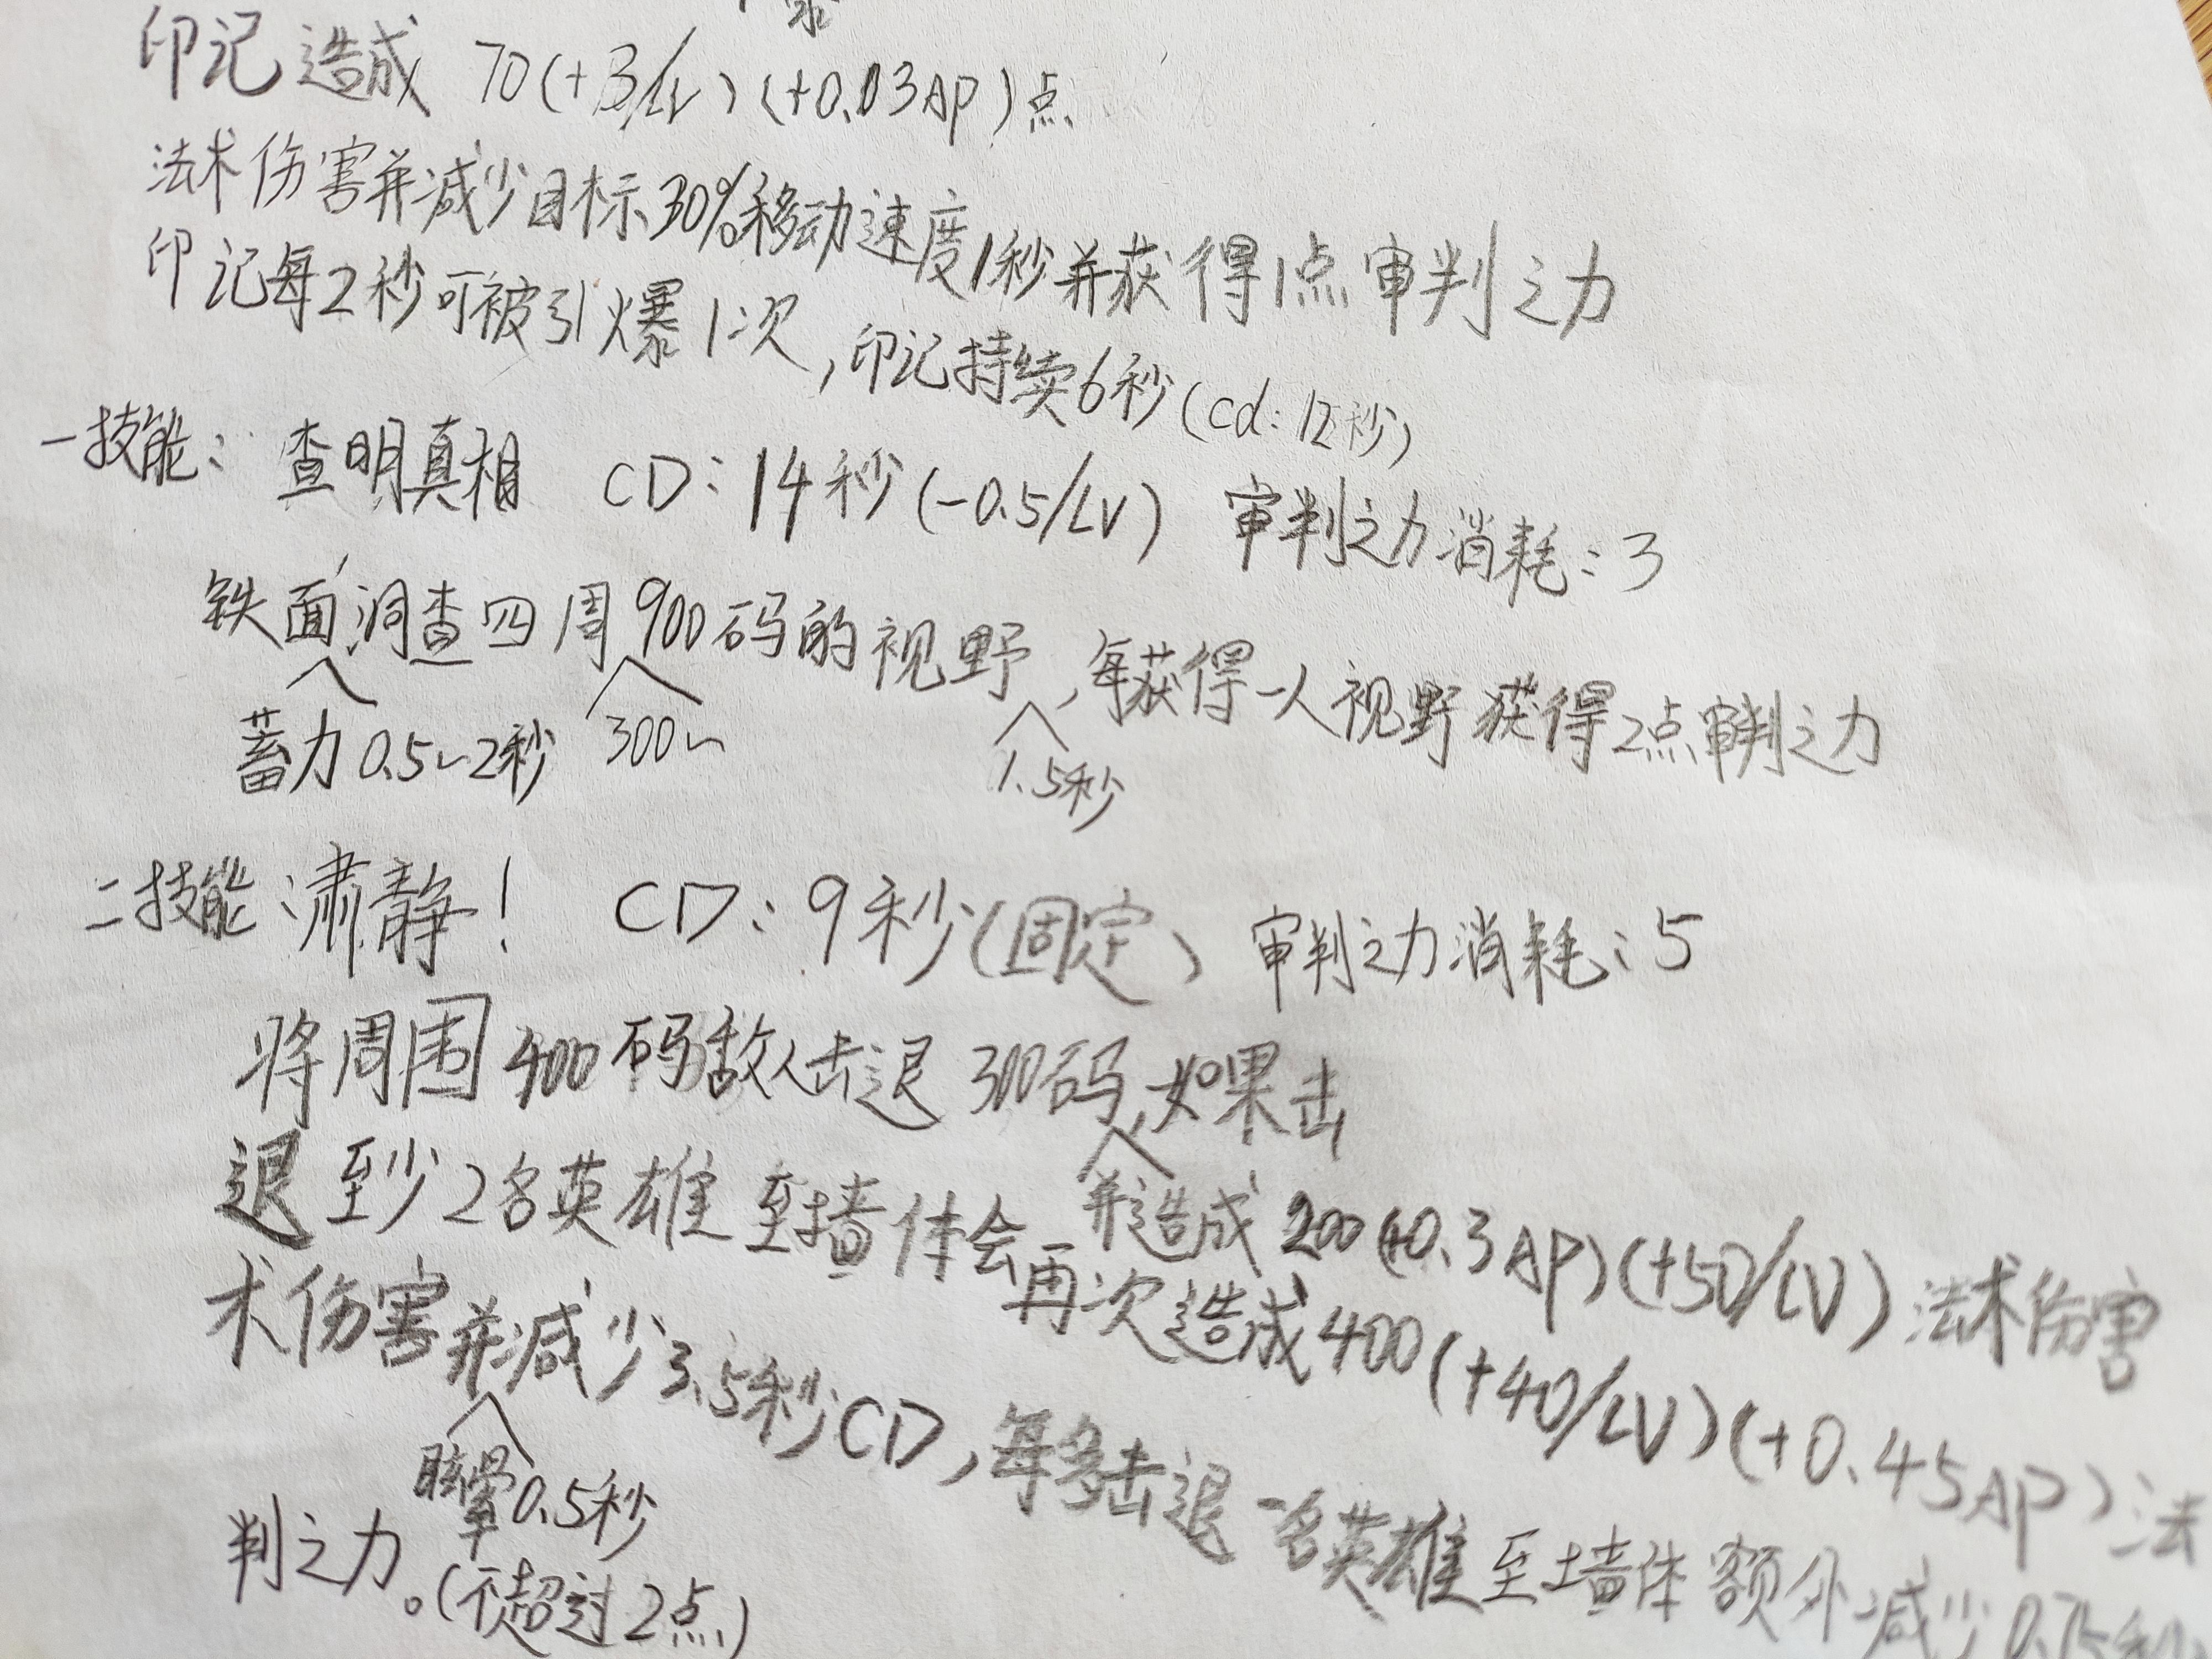 印记造成 70(+3/LV)(+0.03AP)点
法术伤害并减少目标30%移动速度1秒并获得1点审判之力
印记每2秒可被引爆1次,印记持续6秒(cd:12秒)
一技能:查明真相 CD:14秒(-0.5/LV) 审判之力消耗:3
铁面洞查四周900码的视野,每获得一人视野获得2点审判之力
蓄力0.5~2秒 300~ 1.5秒
二技能:肃静! CD:9秒(固定) 审判之力消耗:5
将周围400码敌人击退300码,如果击
并造成200(+0.3AP)(+50/LV)法术伤害
退至少2名英雄至墙体会再次造成400(+40/LV)(+0.45AP)法
术伤害并减少3.5秒CD,每多击退一名英雄至墙体额外减少0.75秒
眩晕0.5秒
判之力。(不超过2点)